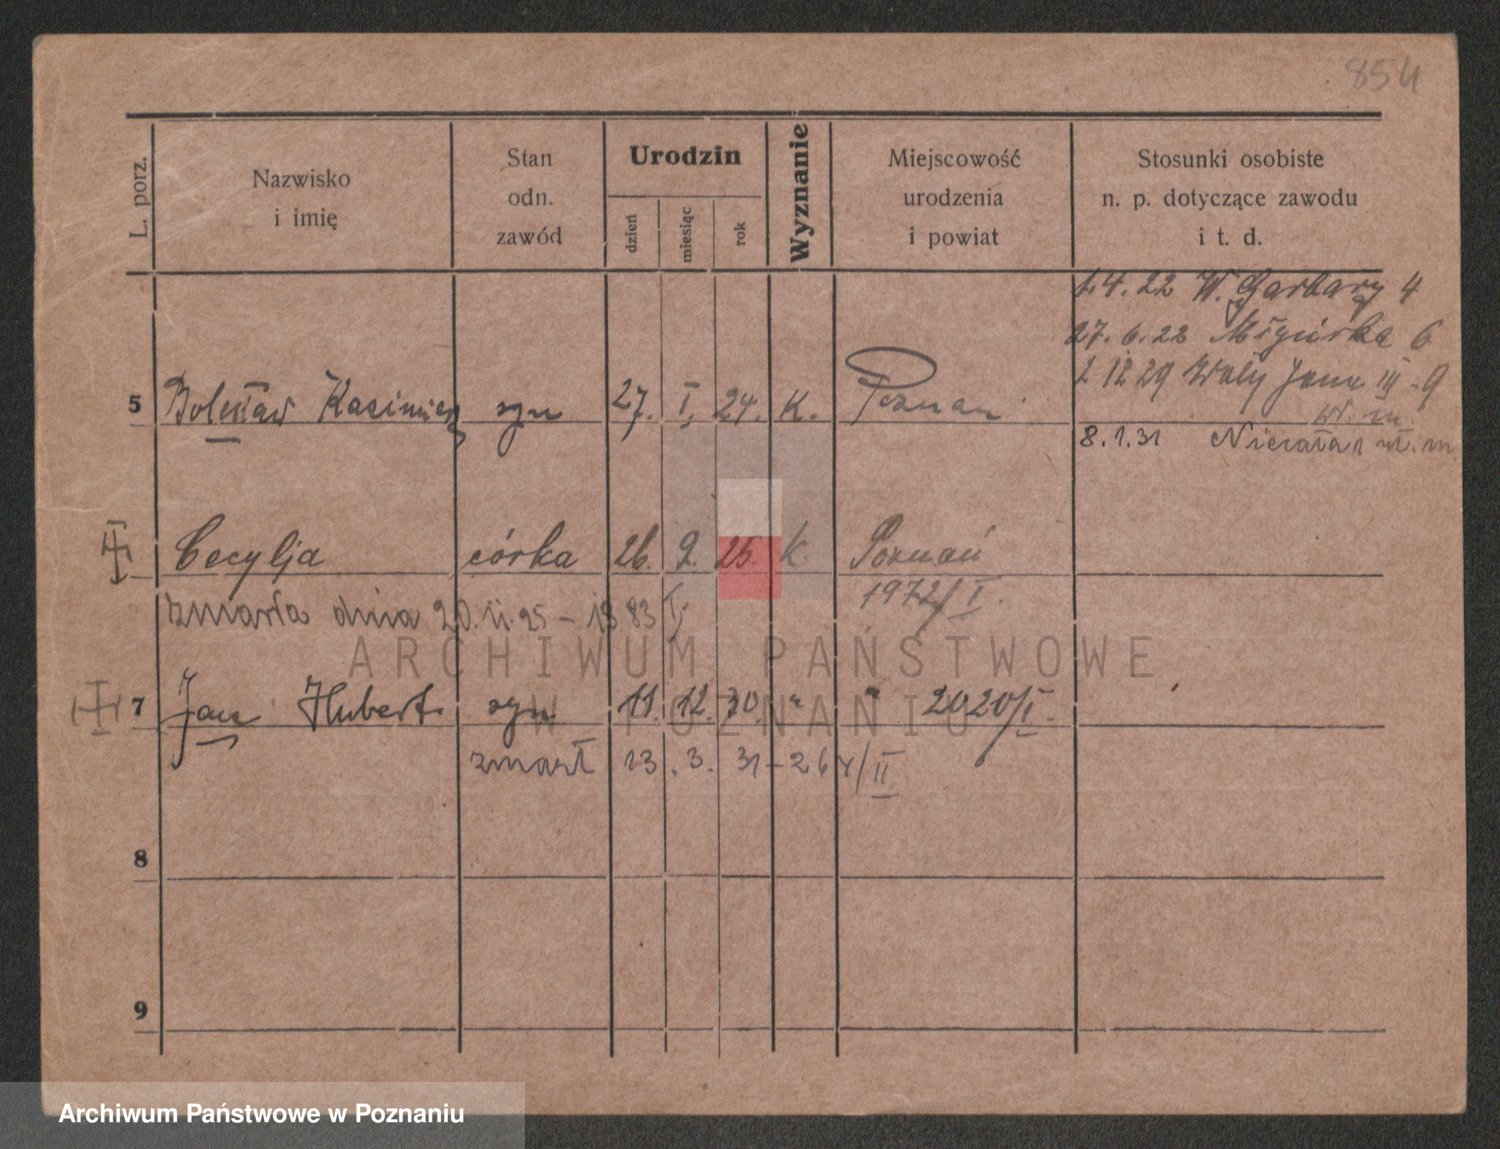 854
L. porz.
Nazwisko
i imię
Stan
odn.
zawód
Urodzin
dzień
miesiąc
rok
Wyznanie
Miejscowość
urodzenia
i powiat
Stosunki osobiste
n. p. dotyczące zawodu
i t. d.
1.4.22 W. Garbary 4
27.6.22 6
12 29 Wały Jana III 9
W. m.
8.1.31 w. m.
5 Bolesław Kazimierz syn 27. I. 24. K. Poznań
Cecylja córka 26. 9. 25. K. Poznań
1972/I.
zmarła dnia 20. 11. 25 – 1383/I
7 Jan Hubert syn 11. 12. 30. " " 2020/I.
zmarł 13. 3. 31 – 264/II
8
9
ARCHIWUM PAŃSTWOWE
W POZNANIU
Archiwum Państwowe w Poznaniu